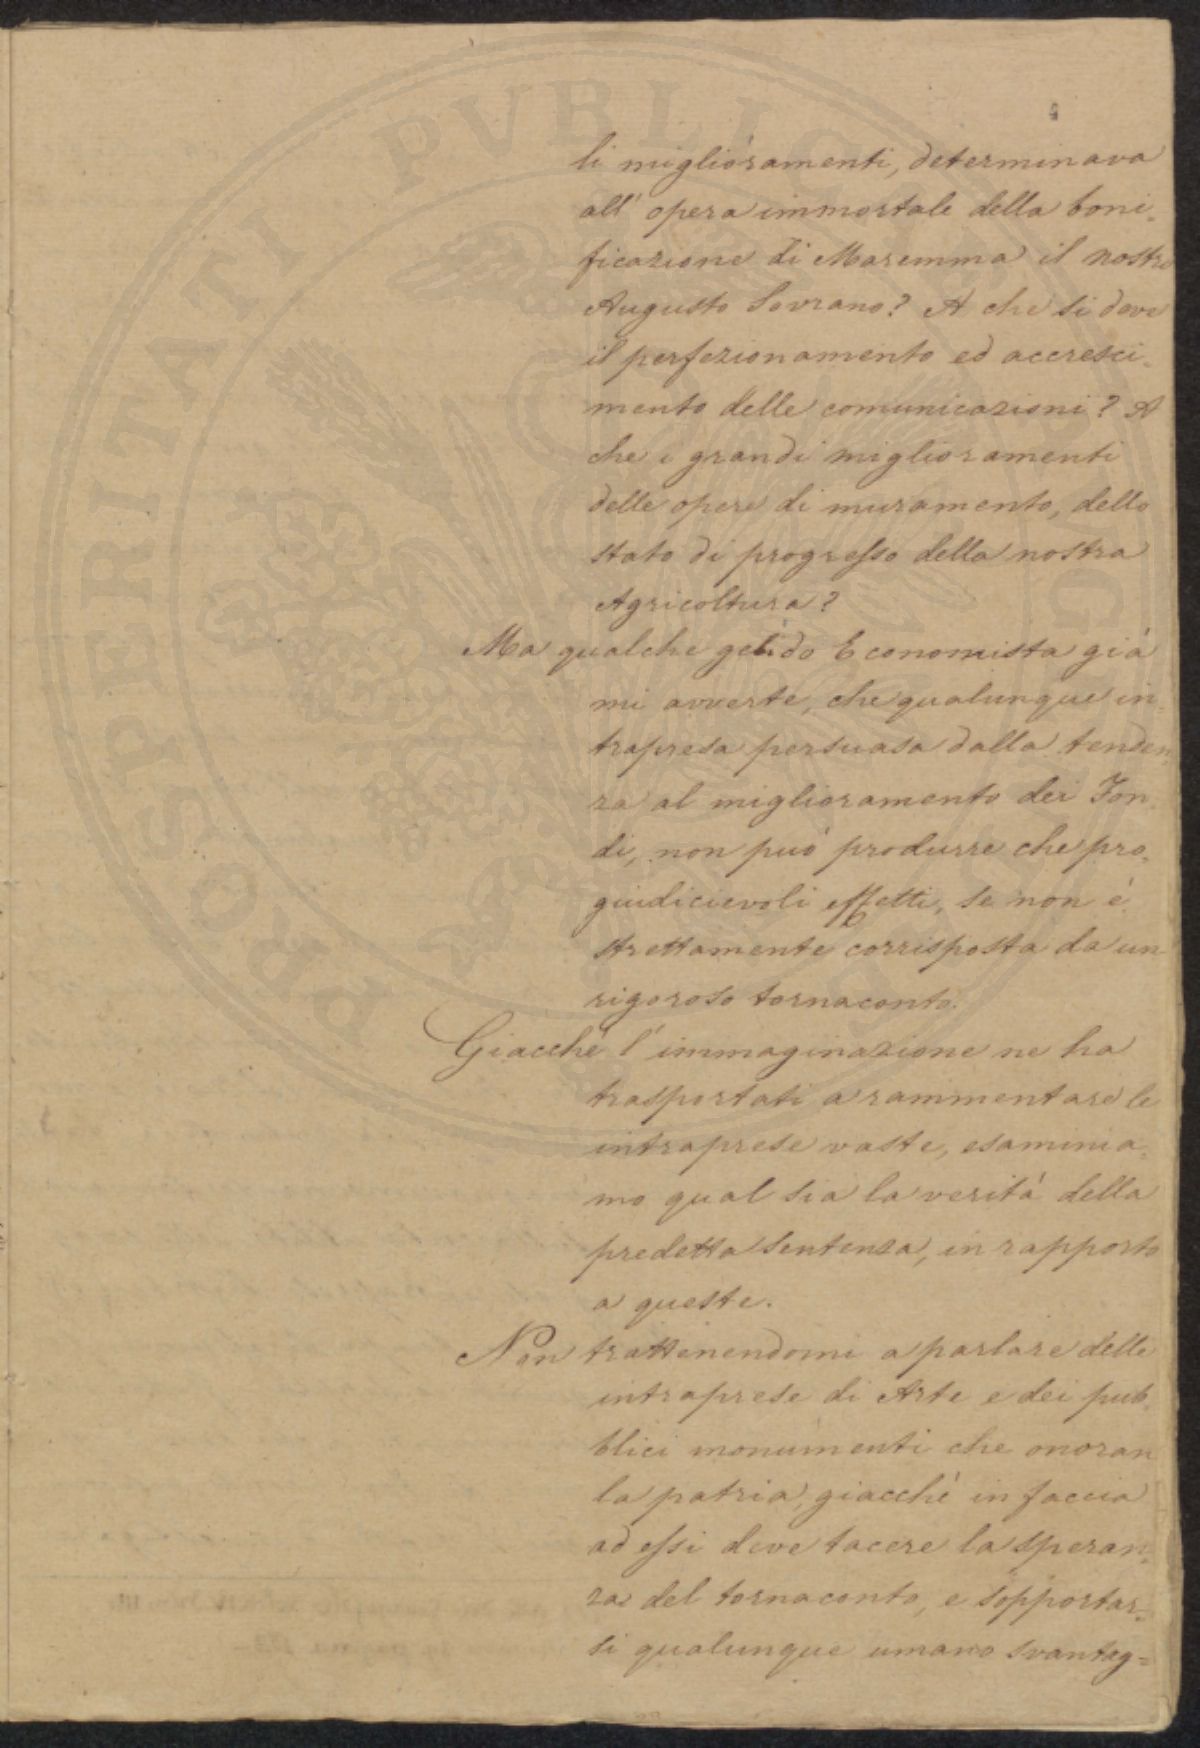 li miglioramenti, determinava
all' opera immortale della boni=
ficazione di Maremma il nostro
Augusto Sovrano? A che si deve
il perfezionamento ed accresci=
mento delle comunicazioni? A
che i grandi miglioramenti
delle opere di muramento, dello
stato di progresso della nostra
Agricoltura?
Ma qualche gelido Economista già
mi avverte, che qualunque in=
trapresa persuasa dalla tenden=
za al miglioramento dei Fon=
di, non può produrre che pre=
giudicievoli effetti, se non è
strettamente corrisposta da un
rigoroso tornaconto.
Giacchè l' immaginazione ne ha
trasportati a rammentare le
intraprese vaste, esaminia=
mo qual sia la verità della
predetta Sentenza, in rapporto
a queste.
Non trattenendomi a parlare delle
intraprese di Arte e dei pub=
blici monumenti che onoran
la patria, giacchè in faccia
ad essi deve tacere la speran=
za del tornaconto, e sopportar=
si qualunque umano svantag=
PROSPERITATI PVBLICAE